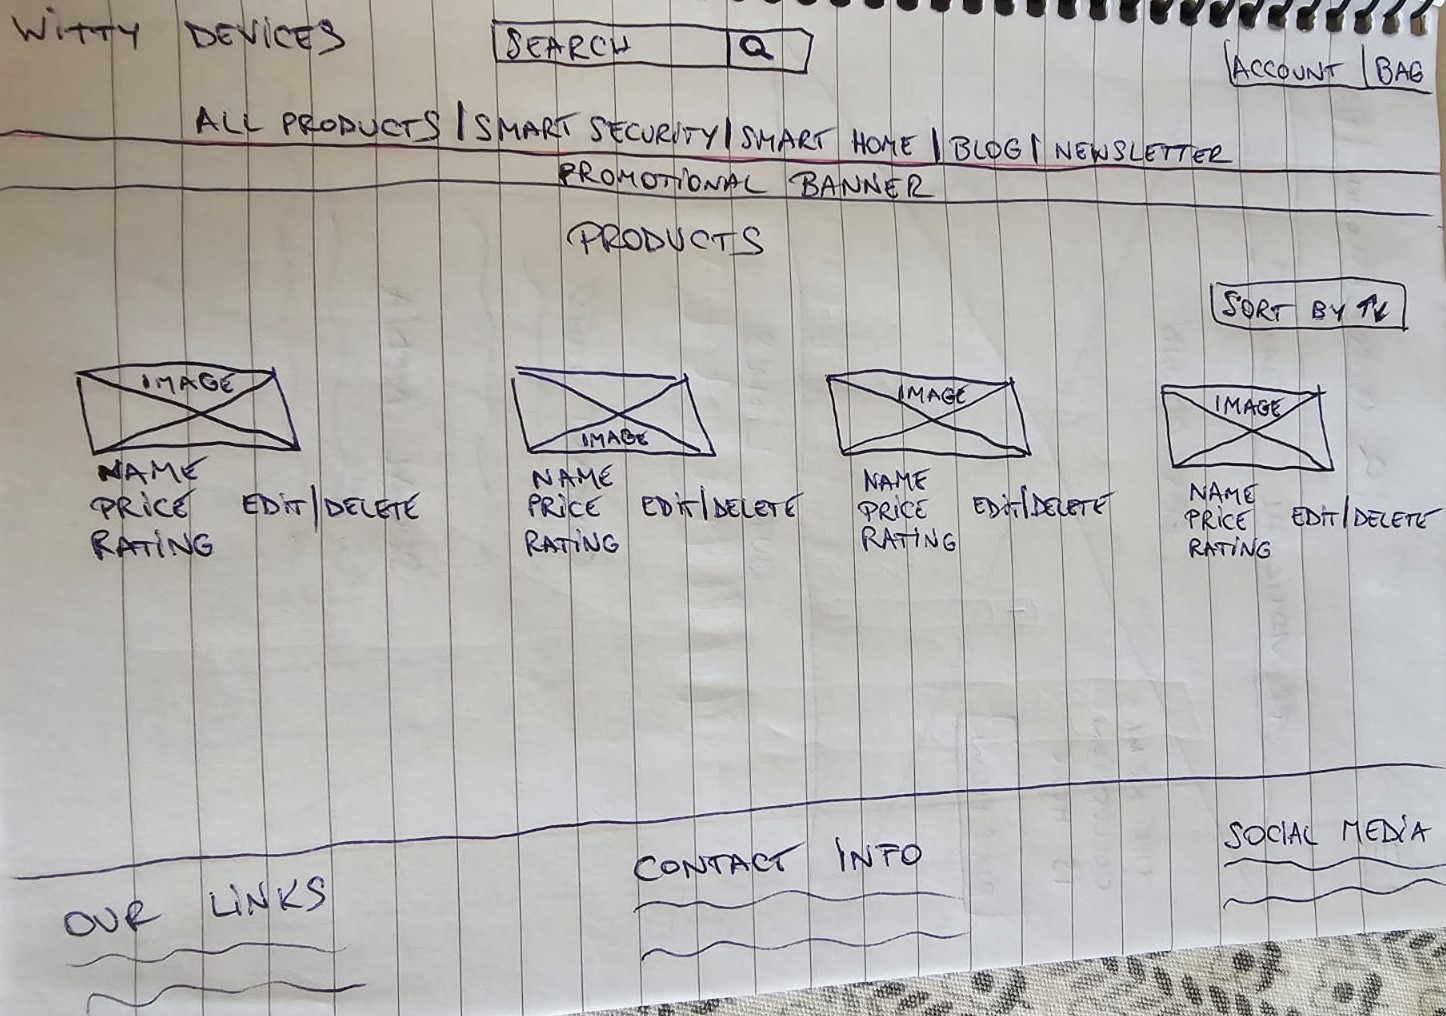 WITTY DEVICES
SEARCH
ACCOUNT | BAG
ALL PRODUCTS | SMART SECURITY | SMART HOME | BLOG | NEWSLETTER
PROMOTIONAL BANNER
PRODUCTS
SORT BY ↑↓
IMAGE
NAME
PRICE EDIT/DELETE
RATING
IMAGE
NAME
PRICE EDIT/DELETE
RATING
IMAGE
NAME
PRICE EDIT/DELETE
RATING
IMAGE
NAME
PRICE EDIT/DELETE
RATING
OUR LINKS
CONTACT INFO
SOCIAL MEDIA